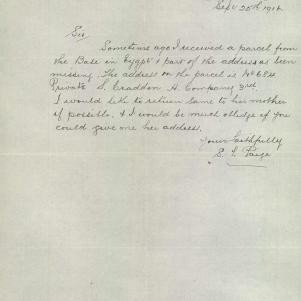 Sept 25th 1916
Sir
Sometime ago I received a parcel from
the Base in Egypt & part of the address as been
missing. The address on the parcel is No 684
Private S. Craddon A. Company 3rd.
I would like to return same to his mother
if possible. & I would be much obliedge if you
could gave one her address.
Yours Faithfully
S. L. Paige